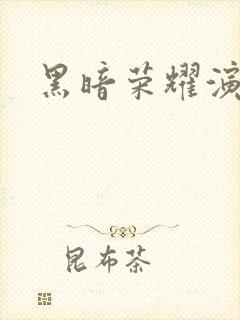 黑暗荣耀演
昆布茶